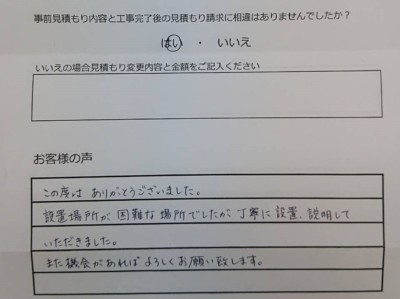 事前見積もり内容と工事完了後の見積もり請求に相違はありませんでしたか？
はい ・ いいえ
いいえの場合見積もり変更内容と金額をご記入ください
お客様の声
この度は ありがとうございました。
設置場所が、困難な場所でしたが、丁寧に設置、説明して
いただきました。
また機会があればよろしくお願い致します。